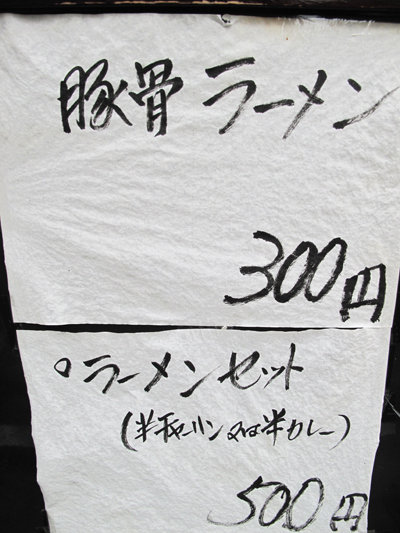 豚骨ラーメン
300円
○ラーメンセット
(半チャーハン又は半カレー)
500円